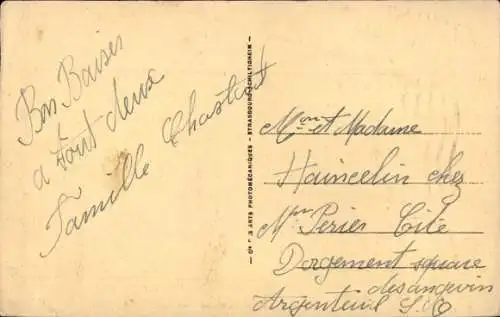 Bons Baisers
a tout deux
Famille Chastant
Cie DES ARTS PHOTOMÉCANIQUES - STRASBOURG-SCHILTIGHEIM -
Mon et Madame
Haincelin chez
Mme Perier Cité
Dorgement square
des angevin
Argenteuil S.O